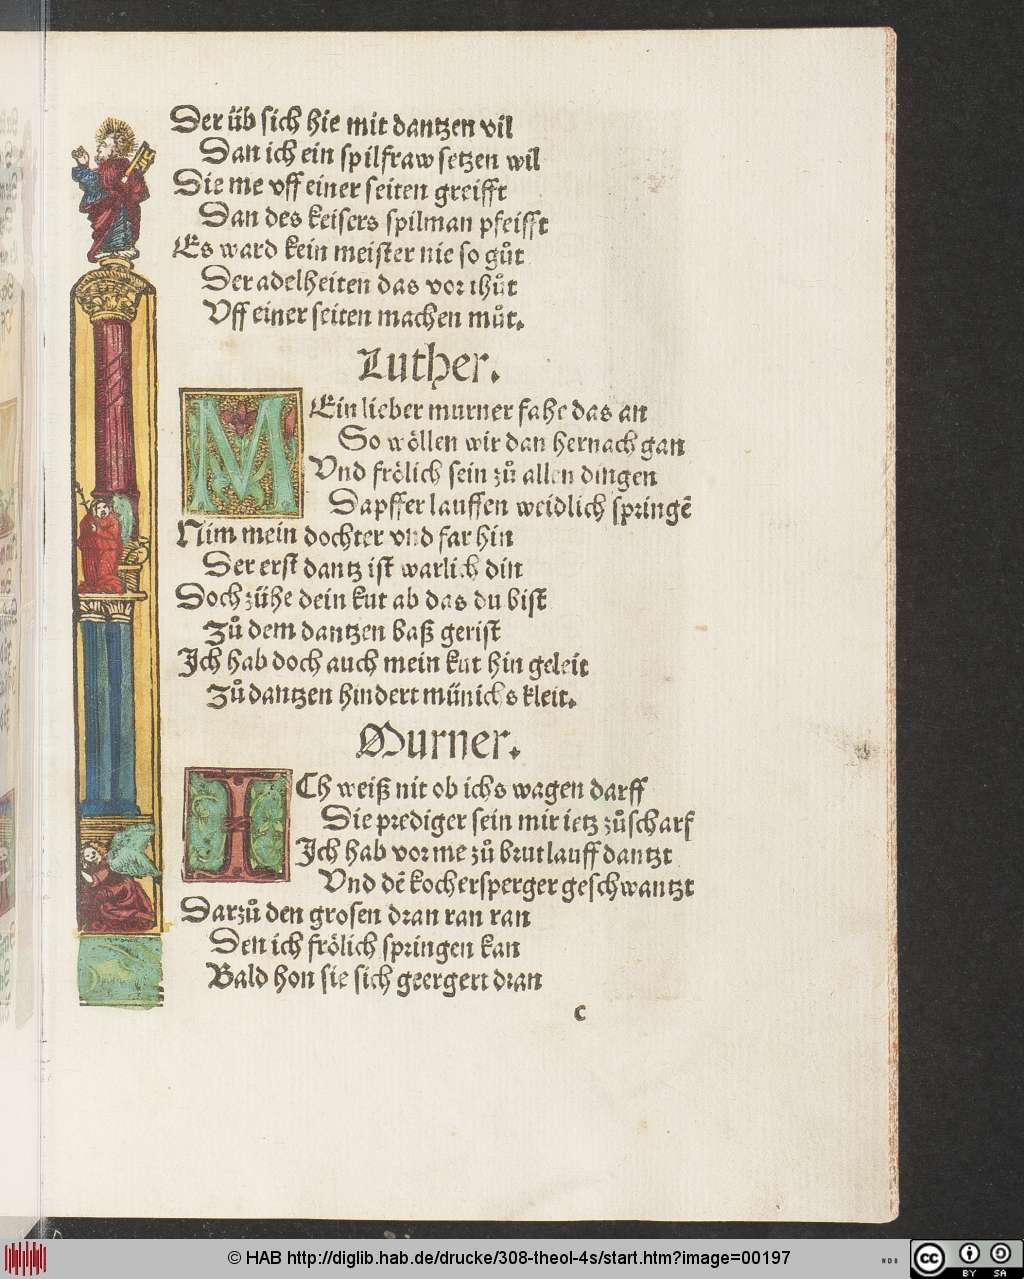 Der üb sich hie mit dantzen vil
Dan ich ein spilfraw setzen wil
Die me vff einer seiten greifft
Dan des keisers spilman pfeifft
Es ward kein meister nie so gůt
Der adelheiten das vor thůt
Vff einer seiten machen můt.
Luther.
MEin lieber murner fahe das an
So wöllen wir dan hernach gan
Vnd frölich sein zů allen dingen
Dapffer lauffen weidlich springē
Nim mein dochter vnd far hin
Der erst dantz ist warlich din
Doch zühe dein kut ab das du bist
Zů dem dantzen baß gerist
Ich hab doch auch mein kut hin geleit
Zů dantzen hindert münichs kleit.
Murner.
ICh weiß nit ob ichs wagen darff
Die prediger sein mir ietz zů scharf
Ich hab vor me zů brutlauff dantzt
Vnd dē kochersperger geschwantzt
Darzů den grosen dran ran ran
Den ich frölich springen kan
Bald hon sie sich geergert dran
C
© HAB http://diglib.hab.de/drucke/308-theol-4s/start.htm?image=00197
WDB
cc
BY SA